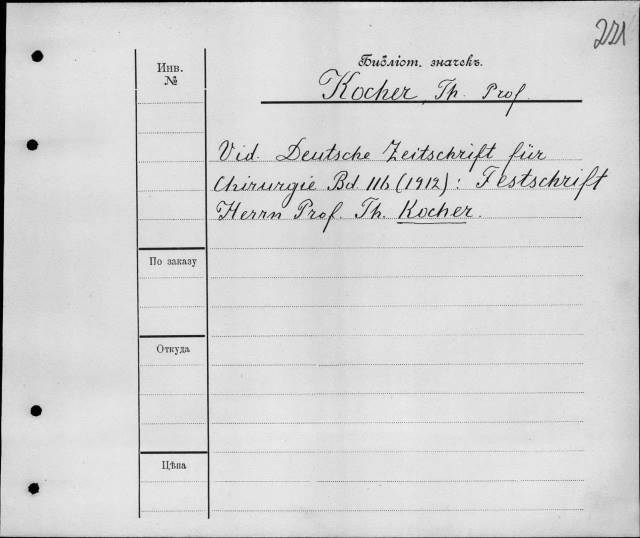 221
Инв.
№
Библіот. значекъ.
Kocher, Th. Prof.
Vid. Deutsche Zeitschrift für
Chirurgie Bd 116 (1912): Festschrift
Herrn Prof. Th. Kocher.
По заказу
Откуда
Цѣна